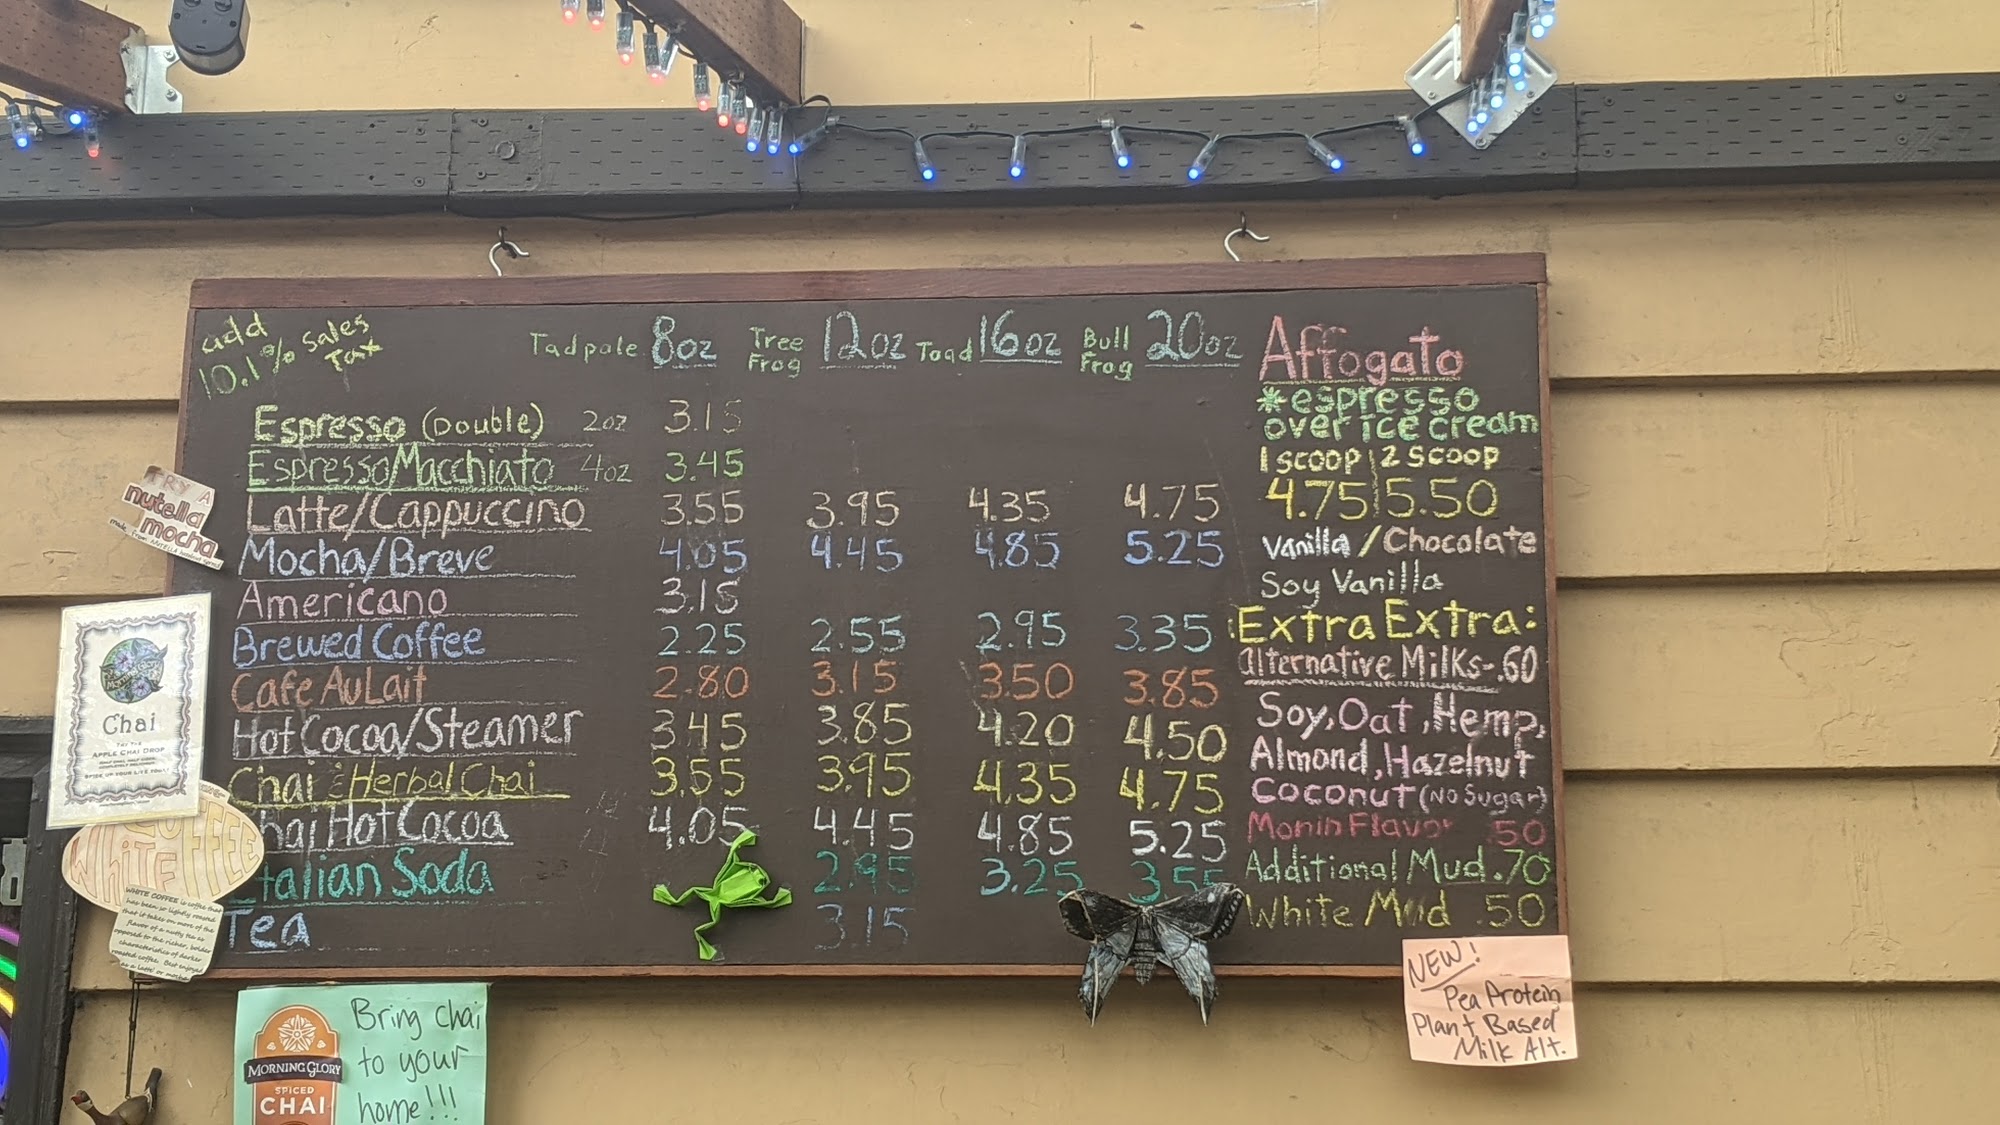 add
10.1% Sales
Tax
Tadpole 8oz Tree Frog 12oz Toad 16oz Bull Frog 20oz
Espresso (Double) 2oz 3.15
Espresso/Macchiato 4oz 3.45
Latte/Cappuccino 3.55 3.95 4.35 4.75
Mocha/Breve 4.05 4.45 4.85 5.25
Americano 3.15
Brewed Coffee 2.25 2.55 2.95 3.35
Cafe Au Lait 2.80 3.15 3.50 3.85
Hot Cocoa/Steamer 3.45 3.85 4.20 4.50
Chai & Herbal Chai 3.55 3.95 4.35 4.75
Chai Hot Cocoa 4.05 4.45 4.85 5.25
Italian Soda 2.95 3.25 3.55
Tea 3.15
Affogato
*espresso
over ice cream
1 scoop | 2 scoop
4.75 | 5.50
Vanilla / Chocolate
Soy Vanilla
Extra Extra:
alternative Milks-.60
Soy, Oat, Hemp,
Almond, Hazelnut
Coconut (No Sugar)
Monin Flavor .50
Additional Mud .70
White Mud .50
NEW!
Pea Protein
Plant Based
Milk Alt.
TRY A
nutella
mocha
Chai
TRY THE
APPLE CHAI DROP
SPICE UP YOUR LIFE TODAY
WHITE COFFEE
WHITE COFFEE is coffee that
has been so lightly roasted
that it takes on more of the
flavor of a nutty tea as
opposed to the richer, bolder
characteristics of darker
roasted coffee. Best enjoyed
as a latte or mocha
MORNING GLORY
SPICED
CHAI
Bring chai
to your
home!!!